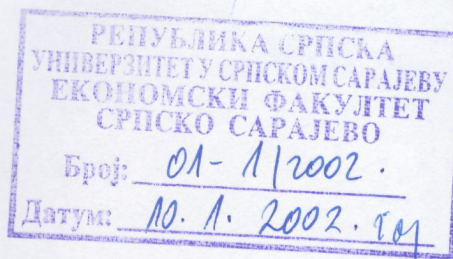 РЕПУБЛИКА СРПСКА
УНИВЕРЗИТЕТ У СРПСКОМ САРАЈЕВУ
ЕКОНОМСКИ ФАКУЛТЕТ
СРПСКО САРАЈЕВО
Број: 01-1/2002.
Датум: 10. 1. 2002. год